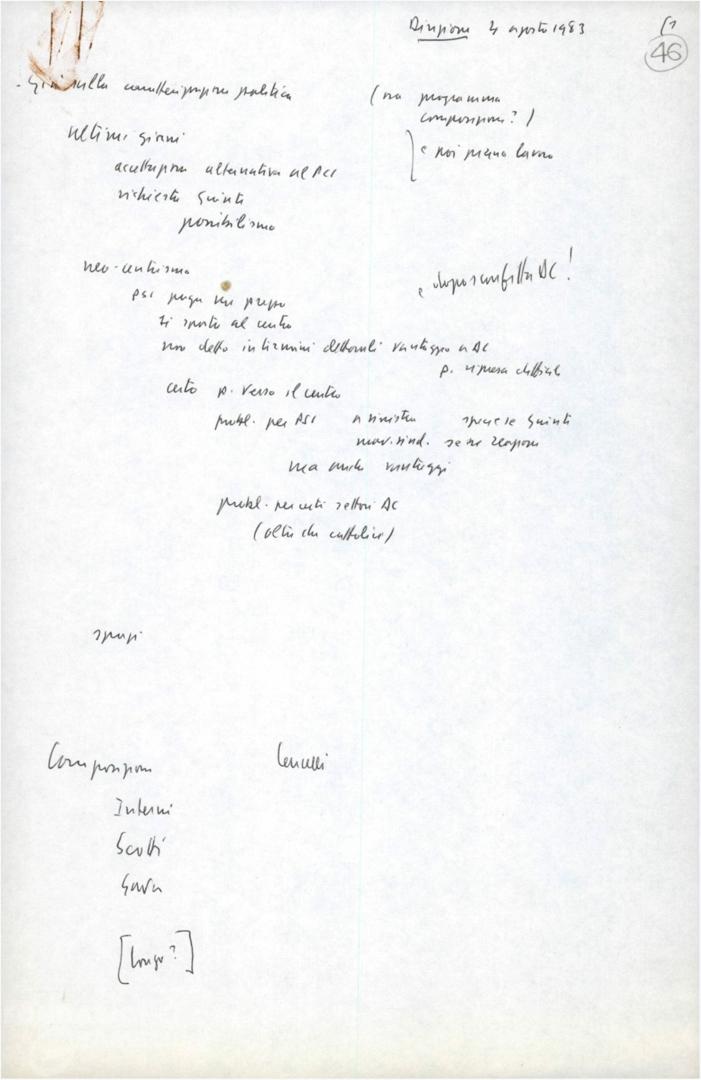 Direzione 4 agosto 1983
46
sulla caratterizzazione politica
(ma programma
composizione?)
ultimi giorni
e poi piano lavoro
accettazione alternativa al PCI
richiesta giunte
possibilismo
neo-centrismo
e dopo sconfitta DC!
PSI paga un prezzo
si sposta al centro
non detto in termini elettorali vantaggio a DC
p. ripresa
certo p. verso il centro
probl. per PSI a sinistra specie se giunte
mov. sind. se ne
ma anche vantaggi
probl. per certi settori DC
(oltre che cattolici)
spazi
Composizione Cencelli
Interni
Scotti
Gava
[Longo?]